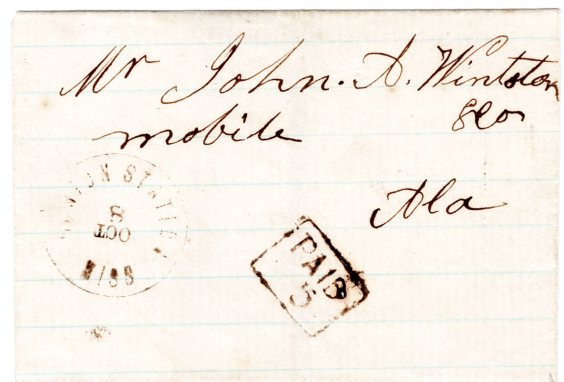 Mr John. A. Winston
&Co
mobile
Ala
STATION
8
OCT
MISS
PAID
5